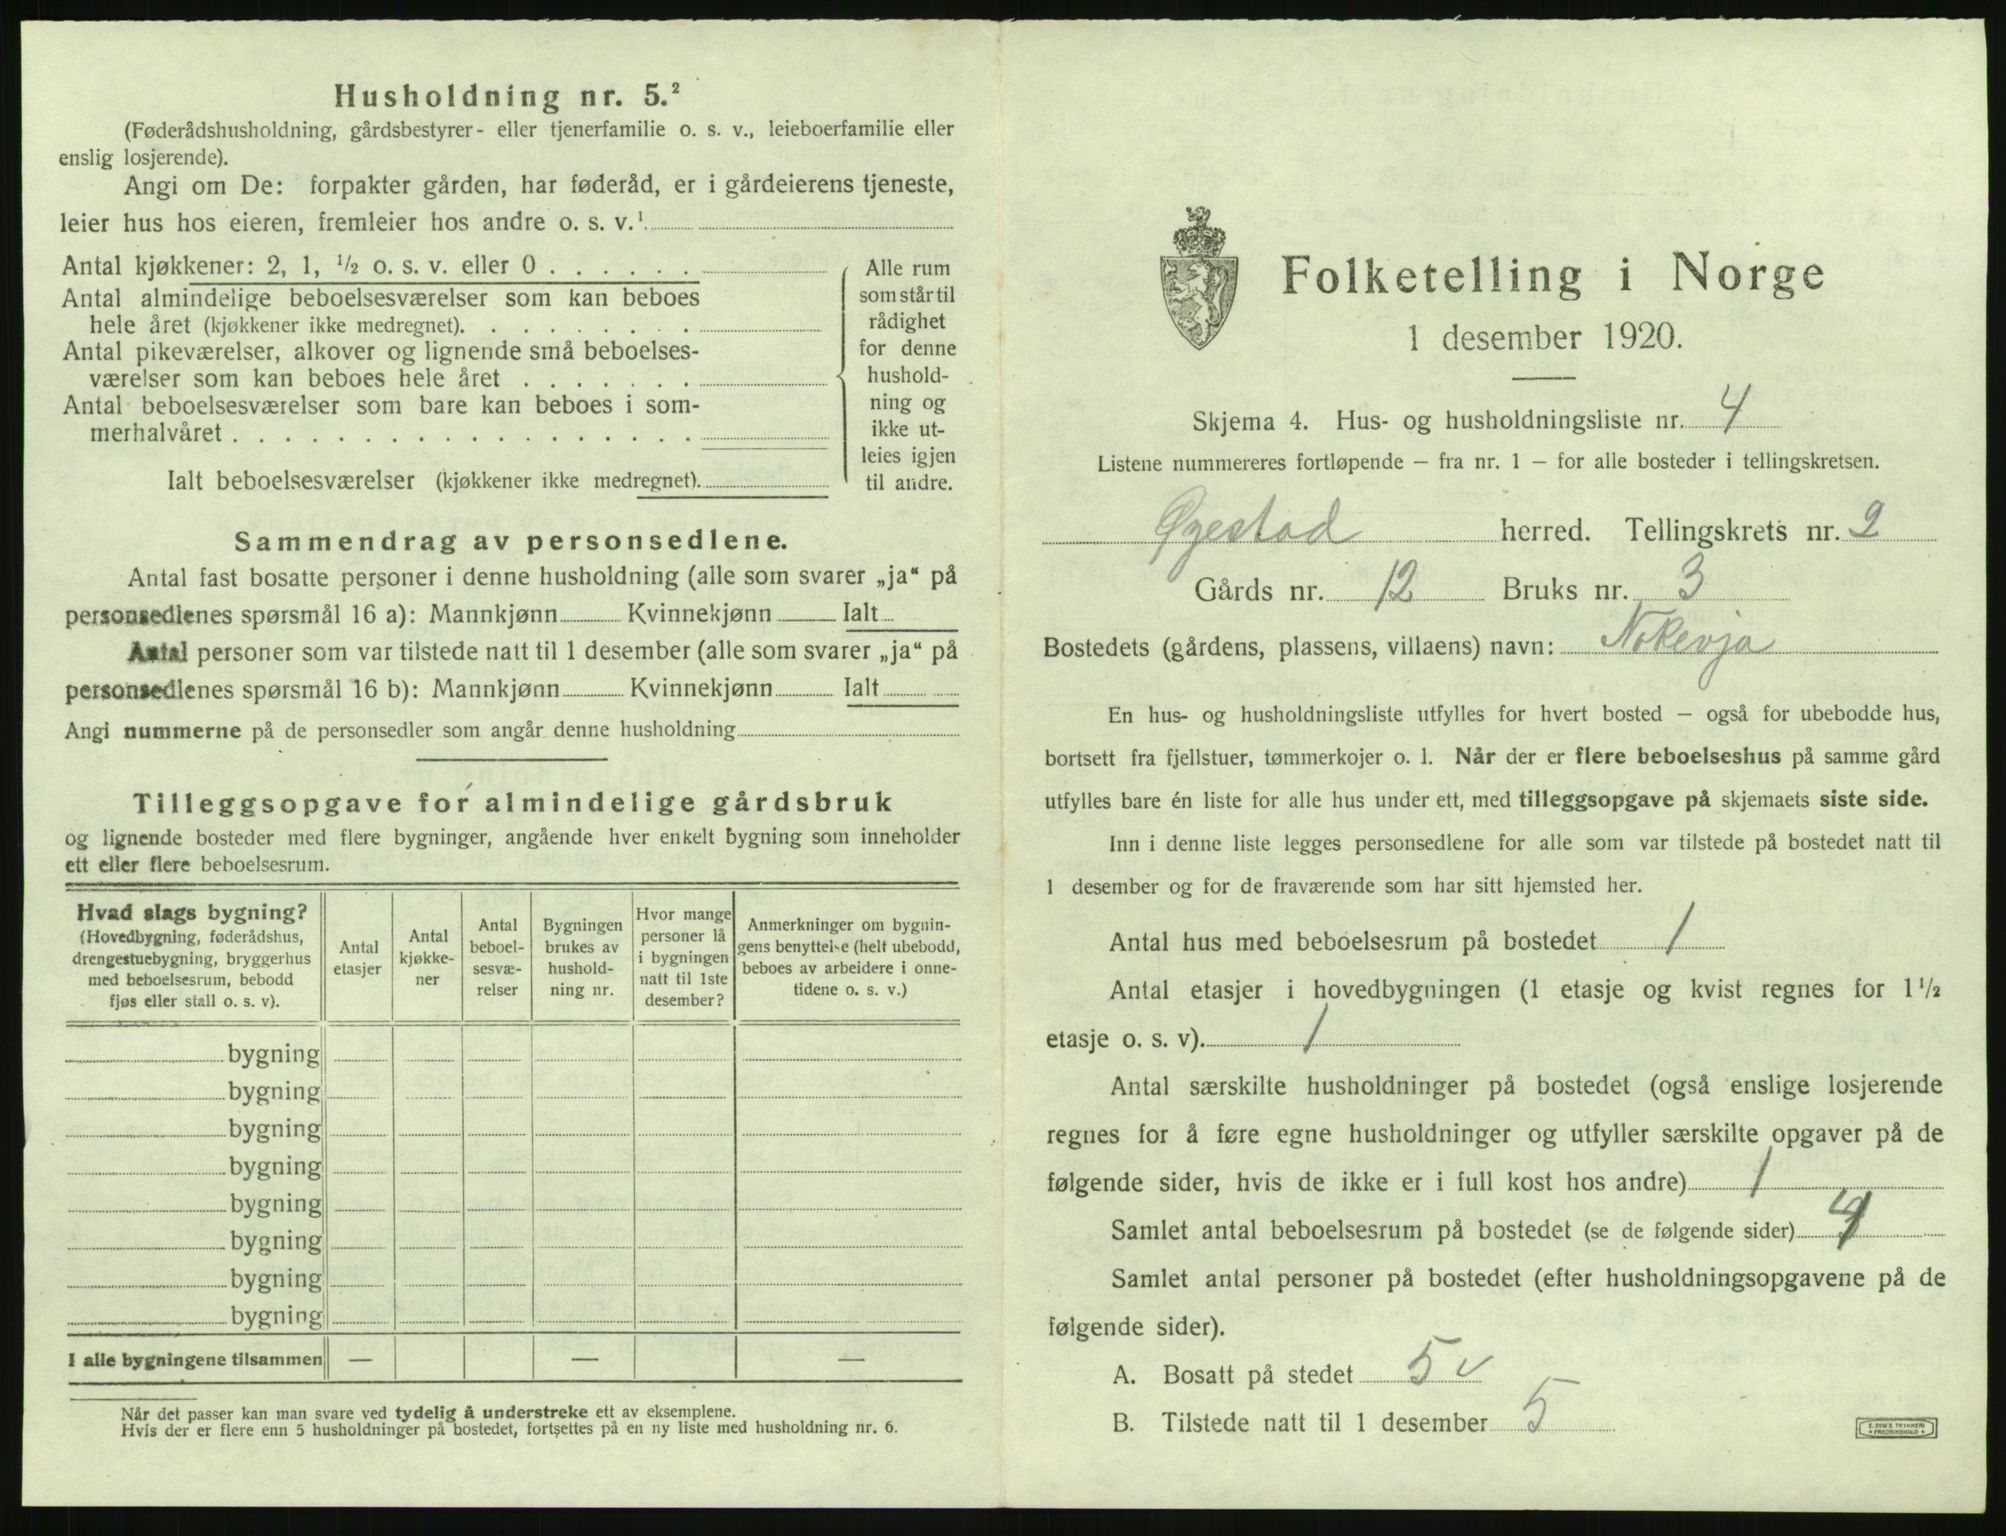 Husholdning nr. 5.²
(Føderådshusholdning, gårdsbestyrer- eller tjenerfamilie o. s. v., leieboerfamilie eller
enslig losjerende).
Angi om De: forpakter gården, har føderåd, er i gårdeierens tjeneste,
leier hus hos eieren, fremleier hos andre o. s. v.¹
Antal kjøkkener: 2, 1, ½ o. s. v. eller 0 . . . . . .
Antal almindelige beboelsesværelser som kan beboes
hele året (kjøkkener ikke medregnet). . . . . . . . .
Antal pikeværelser, alkover og lignende små beboelses-
værelser som kan beboes hele året . . . . . . .
Antal beboelsesværelser som bare kan beboes i som-
merhalvåret . . . . . . . . . . . . . . . . . .
Ialt beboelsesværelser (kjøkkener ikke medregnet).
Alle rum
som står til
rådighet
for denne
hushold-
ning og
ikke ut-
leies igjen
til andre.
Sammendrag av personsedlene.
Antal fast bosatte personer i denne husholdning (alle som svarer „ja“ på
personsedlenes spørsmål 16 a): Mannkjønn Kvinnekjønn Ialt
Antal personer som var tilstede natt til 1 desember (alle som svarer „ja“ på
personsedlenes spørsmål 16 b): Mannkjønn Kvinnekjønn Ialt
Angi nummerne på de personsedler som angår denne husholdning
Tilleggsopgave for almindelige gårdsbruk
og lignende bosteder med flere bygninger, angående hver enkelt bygning som inneholder
ett eller flere beboelsesrum.
Hvad slags bygning?
(Hovedbygning, føderådshus,
drengestuebygning, bryggerhus
med beboelsesrum, bebodd
fjøs eller stall o. s. v).
Antal
etasjer
Antal
kjøkke-
ner
Antal
beboel-
sesvæ-
relser
Bygningen
brukes av
hushold-
ning nr.
Hvor mange
personer lå
i bygningen
natt til 1ste
desember?
Anmerkninger om bygnin-
gens benyttelse (helt ubebodd,
beboes av arbeidere i onne-
tidene o. s. v.)
bygning
bygning
bygning
bygning
bygning
bygning
bygning
bygning
I alle bygningene tilsammen — — —
Når det passer kan man svare ved tydelig å understreke ett av eksemplene.
Hvis der er flere enn 5 husholdninger på bostedet, fortsettes på en ny liste med husholdning nr. 6.
Folketelling i Norge
1 desember 1920.
Skjema 4. Hus- og husholdningsliste nr. 4
Listene nummereres fortløpende — fra nr. 1 — for alle bosteder i tellingskretsen.
Øyestad herred. Tellingskrets nr. 2
Gårds nr. 12 Bruks nr. 3
Bostedets (gårdens, plassens, villaens) navn: Nokevja
En hus- og husholdningsliste utfylles for hvert bosted — også for ubebodde hus,
bortsett fra fjellstuer, tømmerkojer o. l. Når der er flere beboelseshus på samme gård
utfylles bare én liste for alle hus under ett, med tilleggsopgave på skjemaets siste side.
Inn i denne liste legges personsedlene for alle som var tilstede på bostedet natt til
1 desember og for de fraværende som har sitt hjemsted her.
Antal hus med beboelsesrum på bostedet 1
Antal etasjer i hovedbygningen (1 etasje og kvist regnes for 1½
etasje o. s. v). 1
Antal særskilte husholdninger på bostedet (også enslige losjerende
regnes for å føre egne husholdninger og utfyller særskilte opgaver på de
følgende sider, hvis de ikke er i full kost hos andre) 1
Samlet antal beboelsesrum på bostedet (se de følgende sider) 4
Samlet antal personer på bostedet (efter husholdningsopgavene på de
følgende sider).
A. Bosatt på stedet 5 v
B. Tilstede natt til 1 desember 5